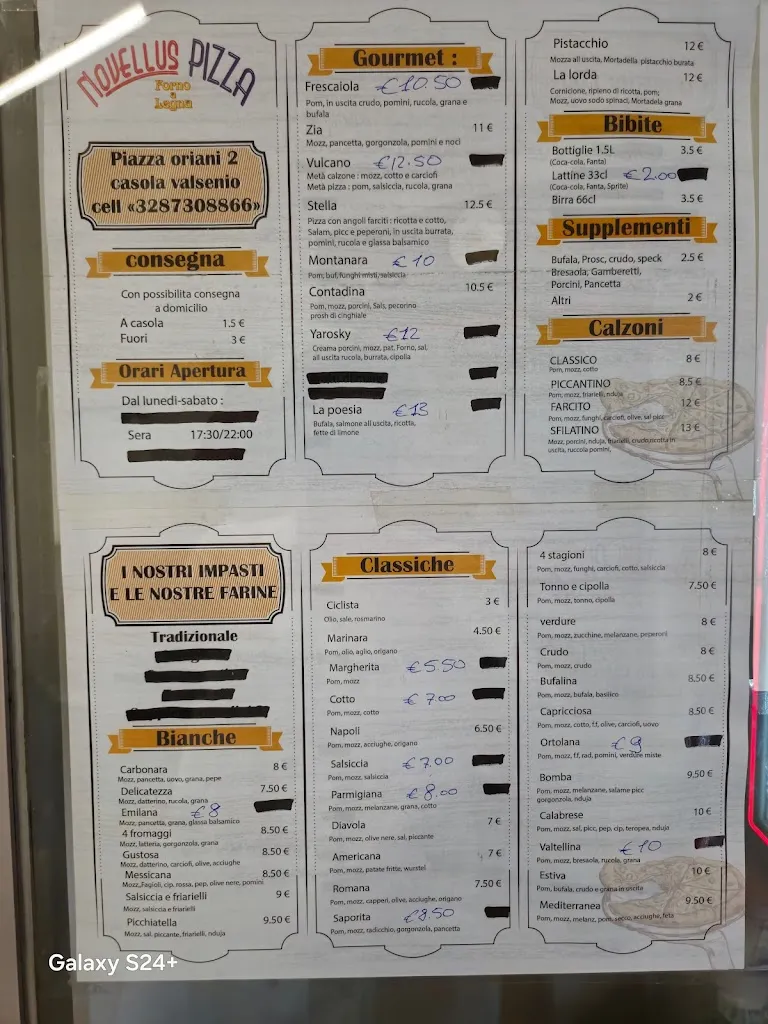 NOVELLUS PIZZA
Forno
a
Legna
Piazza oriani 2
casola valsenio
cell «3287308866»
consegna
Con possibilita consegna
a domicilio
A casola 1.5 €
Fuori 3 €
Orari Apertura
Dal lunedì-sabato :
Sera 17:30/22:00
Gourmet :
Frescaiola €10.50
Pom, in uscita crudo, pomini, rucola, grana e
bufala
Zia 11 €
Mozz, pancetta, gorgonzola, pomini e noci
Vulcano €12.50
Metà calzone : mozz, cotto e carciofi
Metà pizza : pom, salsiccia, rucola, grana
Stella 12.5 €
Pizza con angoli farciti : ricotta e cotto,
Salam, picc e peperoni, in uscita burrata,
pomini, rucola e glassa balsamico
Montanara €10
Pom, buf, funghi misti, salsiccia
Contadina 10.5 €
Pom, mozz, porcini, Sals, pecorino
prosh di cinghiale
Yarosky €12
Creama porcini, mozz, pat, Forno, sal,
all uscita rucola, burrata, cipolla
La poesia €13
Bufala, salmone all uscita, ricotta,
fette di limone
Pistacchio 12 €
Mozza all uscita, Mortadella pistacchio burata
La lorda 12 €
Cornicione, ripieno di ricotta, pom;
Mozz, uovo sodo spinaci, Mortadela grana
Bibite
Bottiglie 1.5L 3.5 €
(Coca-cola, Fanta)
Lattine 33cl €2.00
(Coca-cola, Fanta, Sprite)
Birra 66cl 3.5 €
Supplementi
Bufala, Prosc, crudo, speck 2.5 €
Bresaola; Gamberetti,
Porcini, Pancetta
Altri 2 €
Calzoni
CLASSICO 8 €
Pom, mozz, cotto
PICCANTINO 8.5 €
Pom, mozz, friarielli, nduja
FARCITO 12 €
Pom, mozz, funghi, carciofi, olive, sal picc
SFILATINO 13 €
Mozz, porcini, nduja, friarielli, crudo ricotta in
uscita, ruccola pomini,
I NOSTRI IMPASTI
E LE NOSTRE FARINE
Tradizionale
Bianche
Carbonara 8 €
Mozz, pancetta, uovo, grana, pepe
Delicatezza 7.50 €
Mozz, datterino, rucola, grana
Emilana €8
Mozz, pancetta, grana, glassa balsamico
4 fromaggi 8.50 €
Mozz, latteria, gorgonzola, grana
Gustosa 8.50 €
Mozz, datterino, carciofi, olive, acciughe
Messicana 8.50 €
Mozz,Fagioli, cip, rossa, pep, olive nere, pomini
Salsiccia e friarielli 9 €
Mozz, salsiccia e friarielli
Picchiatella 9.50 €
Mozz, sal, piccante, friarielli, nduja
Classiche
Ciclista 3 €
Olio, sale, rosmarino
Marinara 4.50 €
Pom, olio, aglio, origano
Margherita €5.50
Pom, mozz
Cotto €7.00
Pom, mozz, cotto
Napoli 6.50 €
Pom, mozz, acciughe, origano
Salsiccia €7.00
Pom, mozz, salsiccia
Parmigiana €8.00
Pom, mozz, melanzane, grana, cotto
Diavola 7 €
Pom, mozz, olive nere, sal, piccante
Americana 7 €
Pom, mozz, patate fritte, wurstel
Romana 7.50 €
Pom, mozz, capperi, olive, acciughe, origano
Saporita €8.50
Pom, mozz, radicchio, gorgonzola, pancetta
4 stagioni 8 €
Pom, mozz, funghi, carciofi, cotto, salsiccia
Tonno e cipolla 7.50 €
Pom, mozz, tonno, cipolla
verdure 8 €
Pom, mozz, zucchine, melanzane, peperoni
Crudo 8 €
Pom, mozz, crudo
Bufalina 8.50 €
Pom, mozz, bufala, basilico
Capricciosa 8.50 €
Pom, mozz, cotto, f.f, olive, carciofi, uovo
Ortolana €9
Pom, mozz, f.f, rad, pomini, verdure miste
Bomba 9.50 €
Pom, mozz, melanzane, salame picc
gorgonzola, nduja
Calabrese 10 €
Pom, mozz, sal, picc, pep, cip, teropea, nduja
Valtellina €10
Pom, mozz, bresaola, rucola, grana
Estiva 10 €
Pom, bufala, crudo e grana in uscita
Mediterranea 9.50 €
Pom, mozz, melanz, pom, secco, acciughe, feta
Galaxy S24+